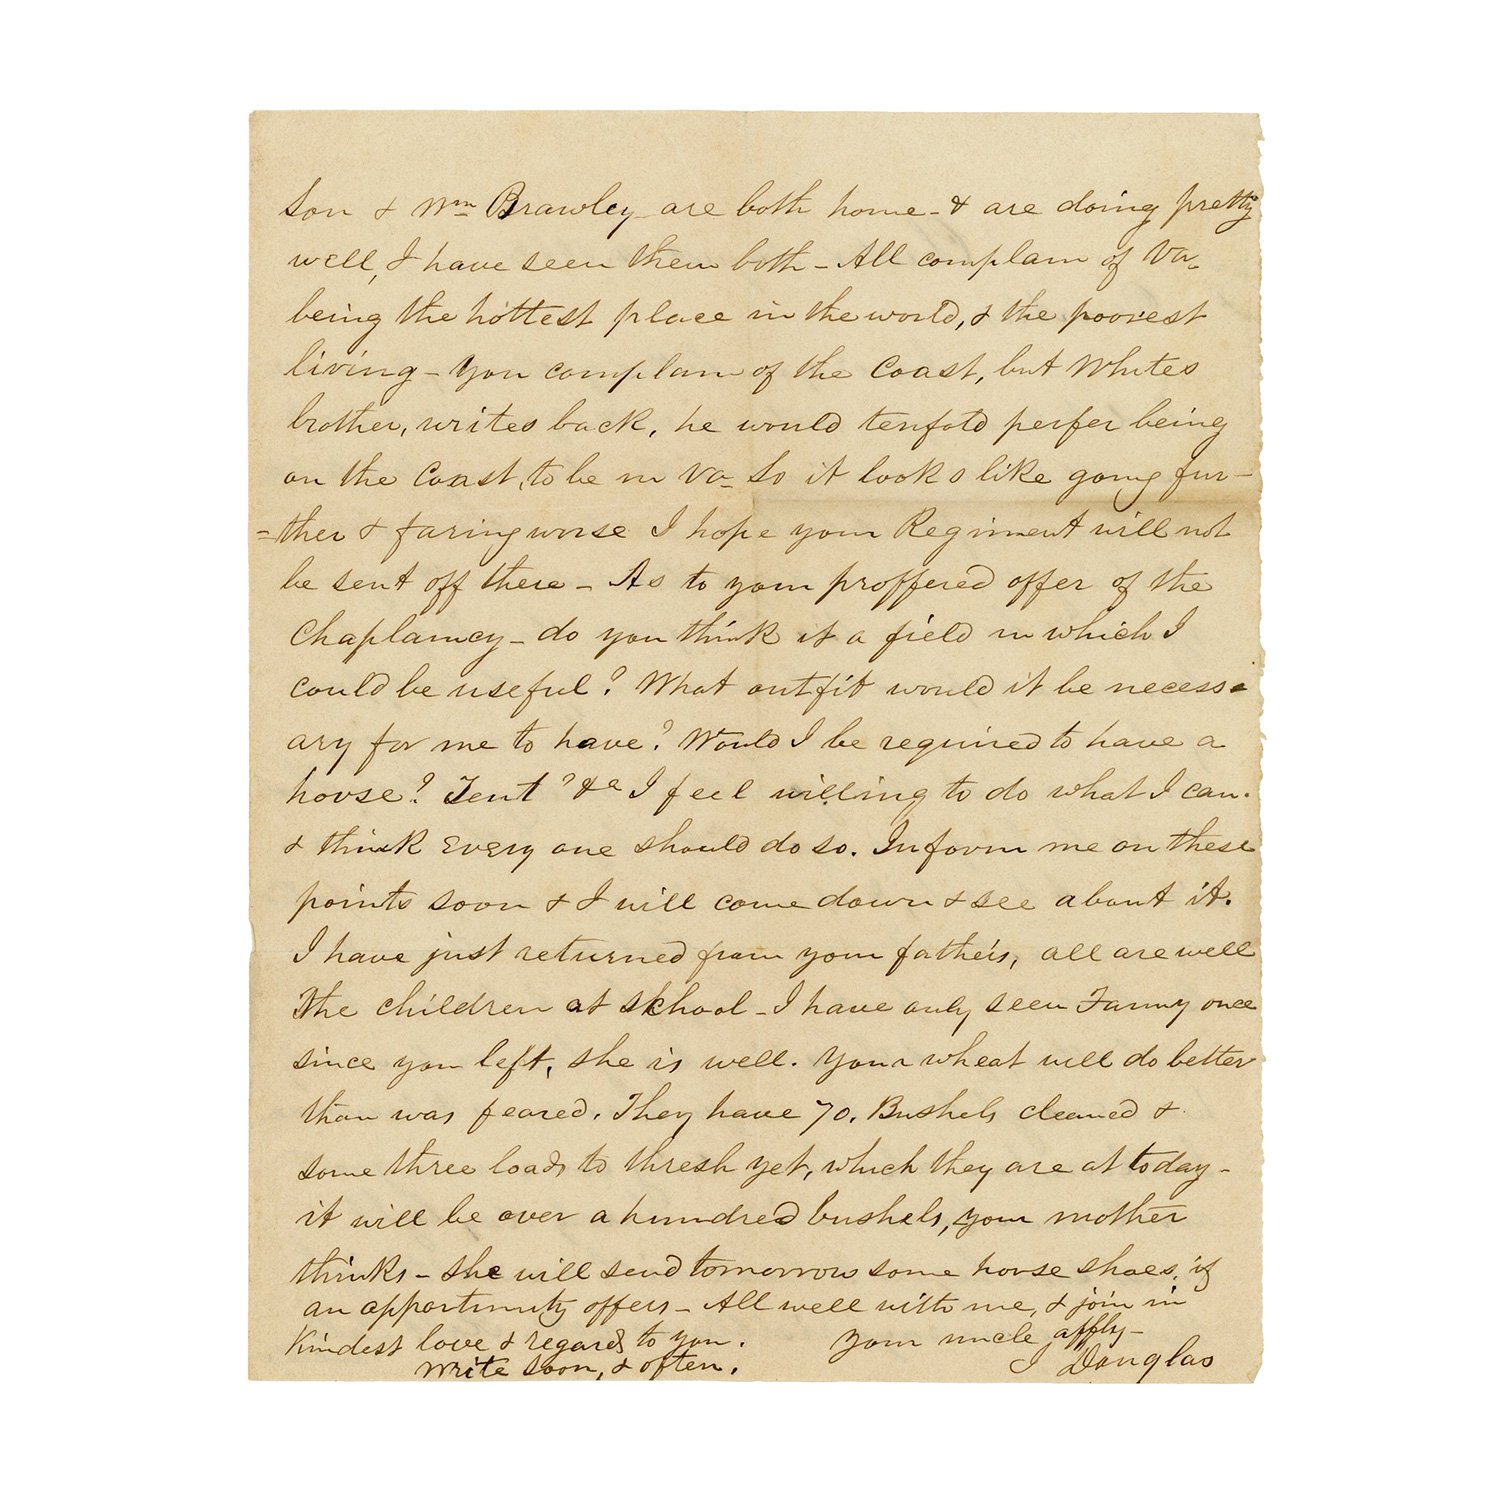 son & Wm Brawley are both home - & are doing pretty
well, I have seen them both - All complain of Va-
being the hottest place in the world, & the poorest
living - you complain of the Coast, but Whites
brother, writes back, he would tenfold perfer being
on the Coast, to be in Va- So it looks like going fur-
-ther & faring worse I hope your Regiment will not
be sent off there - As to your proffered offer of the
Chaplaincy - do you think it a field in which I
could be useful? What outfit would it be necess-
ary for me to have? Would I be required to have a
horse? Tent? &c I feel willing to do what I can.
& think every one should do so. Inform me on these
points soon & I will come down & see about it.
I have just returned from your father's, all are well
The children at skhool - I have only seen Fanny once
since you left, she is well. Your wheat will do better
than was feared. They have 70. Bushels cleaned &
some three loads to thresh yet, which they are at today -
it will be over a hundred bushels, your mother
thinks - she will send tomorrow some horse shoes, if
an opportunity offers - All well with me, & join in
Kindest love & regards to you. your uncle affly-
write soon, & often. J Douglas